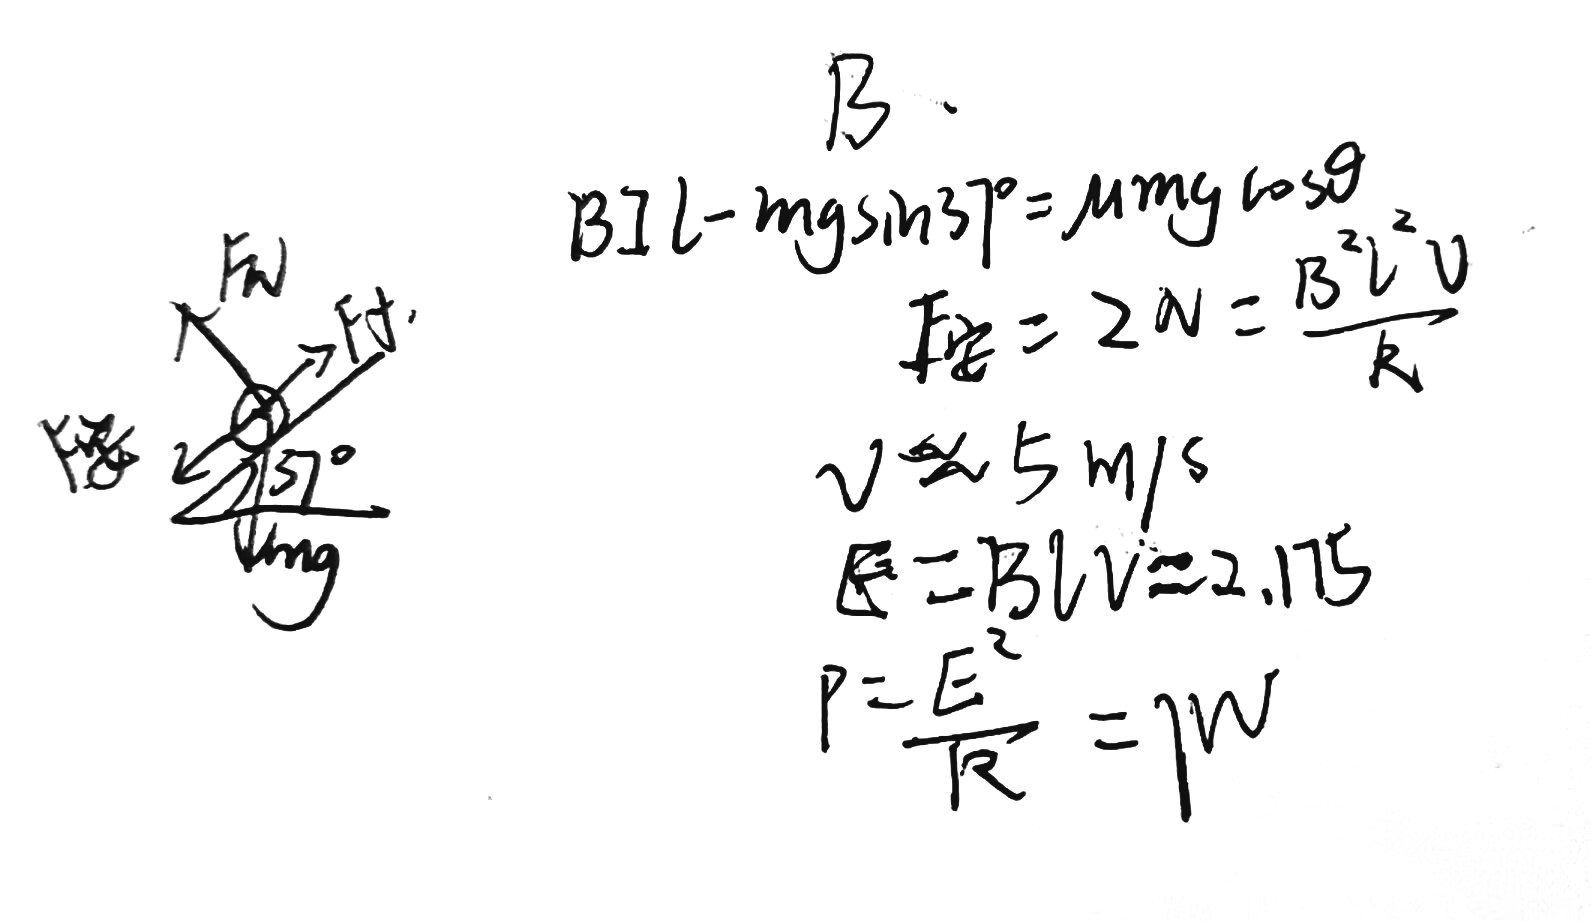 B
BIl - mgsin37° = μmg cosθ
F安 = 2N = B²l²v/R
v ≈ 5 m/s
E = Blv ≈ 2.175
P = E²/R = 1W
FN
F
37°
mg